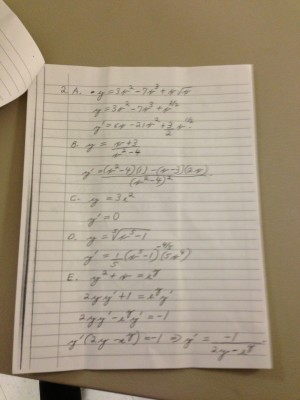 2. A. • y = 3x² - 7x³ + x√x
y = 3x² - 7x³ + x^(3/2)
y' = 6x - 21x² + 3/2 x^(1/2)
B. y = (x+3)/(x²-4)
y' = ((x²-4)(1) - (x-3)(2x))/(x²-4)²
C. y = 3e²
y' = 0
D. y = ⁵√(x⁵-1)
y' = 1/5 (x⁵-1)^(-4/5) (5x⁴)
E. y² + x = e^y
2yy' + 1 = e^y y'
2yy' - e^y y' = -1
y'(2y - e^y) = -1 ⇒ y' = -1/(2y - e^y)